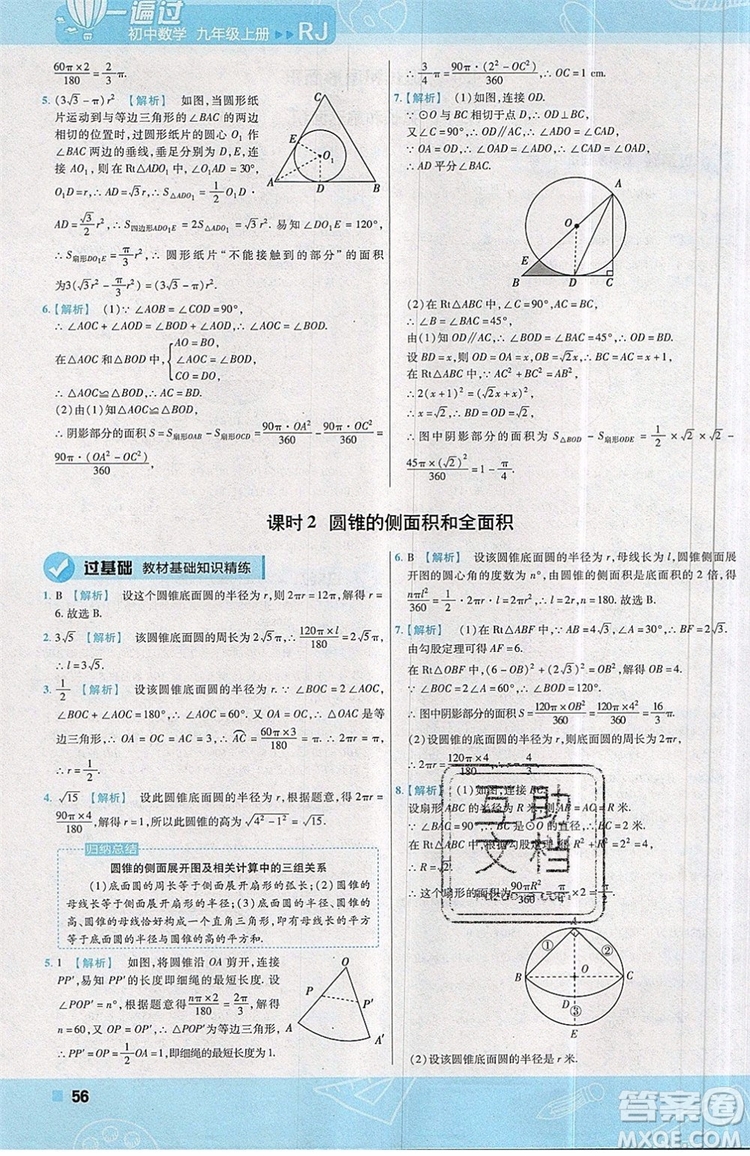 一遍过
初中数学 九年级上册 ▸▸ RJ
60π×2/180 = 2π/3.
5. (3√3-π)r² 【解析】 如图,当圆形纸
片运动到与等边三角形的∠BAC的两边
相切的位置时,过圆形纸片的圆心O₁作
∠BAC两边的垂线,垂足分别为D,E,连
接AO₁,则在Rt△ADO₁中,∠O₁AD=30°,
O₁D=r,AD=√3r.∴S△ADO₁=1/2O₁D·
AD=√3/2r²,∴S四边形ADO₁E=2S△ADO₁=√3r².易知∠DO₁E=120°,
∴S扇形DO₁E=π/3r²,∴圆形纸片“不能接触到的部分”的面积
为3(√3r²-π/3r²)=(3√3-π)r².
6.【解析】 (1)∵∠AOB=∠COD=90°,
∴∠AOC+∠AOD=∠BOD+∠AOD,∴∠AOC=∠BOD.
在△AOC和△BOD中,{AO=BO, ∠AOC=∠BOD, CO=DO,
∴△AOC≌△BOD,∴AC=BD.
(2)由(1)知△AOC≌△BOD,
∴阴影部分的面积S=S扇形OAB-S扇形OCD=90π·OA²/360-90π·OC²/360=
90π·(OA²-OC²)/360,
∴3/4π=90π·(2²-OC²)/360,∴OC=1 cm.
7.【解析】 (1)如图,连接OD.
∵⊙O与BC相切于点D,∴OD⊥BC.
又∵∠C=90°,∴OD∥AC,∴∠CAD=∠ODA.
∵OA=OD,∴∠OAD=∠ODA,∴∠OAD=∠CAD,
∴AD平分∠BAC.
A
O
E
B D C
(2)在Rt△ABC中,∠C=90°,AC=BC,
∴∠B=∠BAC=45°,
由(1)知OD∥AC,∴∠BOD=∠BAC=45°.
设BD=x,则OD=OA=x,OB=√2x,∴BC=AC=x+1.
在Rt△ABC中,AC²+BC²=AB²,
∴2(x+1)²=(√2x+x)²,
∴x=√2,∴BD=OD=√2,
∴图中阴影部分的面积=S△BOD-S扇形ODE=1/2×√2×√2-
45π×(√2)²/360=1-π/4.
课时2 圆锥的侧面积和全面积
过基础 教材基础知识精练
1. B 【解析】 设这个圆锥底面圆的半径为r,则2πr=12π,解得r=
6.故选B.
2. 3√5 【解析】 该圆锥底面圆的周长为2√5π,∴120π×l/180=2√5π,
∴l=3√5.
3. 1/2 【解析】 设该圆锥底面圆的半径为r.∵∠BOC=2∠AOC,
∠BOC+∠AOC=180°,∴∠AOC=60°.又OA=OC,∴△OAC是等
边三角形,∴OA=3,∴AC=60π×3/180=π.∴2πr=π,
∴r=1/2.
4. √15 【解析】 设此圆锥底面圆的半径为r,根据题意,得2πr=
90π×4/180,解得r=1,所以此圆锥的高为√4²-1²=√15.
归纳总结
圆锥的侧面展开图及相关计算中的三组关系
(1)底面的周长等于侧面展开扇形的弧长;(2)圆锥的
母线长等于侧面展开扇形的半径;(3)圆锥的母线长、高
与底面圆的半径构成一个直角三角形,即母线长的平方
等于底面圆的半径与圆锥的高的平方和.
5. 1 【解析】 如图,将圆锥沿OA剪开,连接
PP′,易知PP′的长度即为细绳的最短长度.
设∠POP′=n°,根据题意,得nπ×2/180=2π/3,解得
n=60,又OP=OP′,∴△OPP′为等边三角形,
∴PP′=OP=1/2OA=1,即细绳的最短长度为1.
6. B 【解析】 设该圆锥底面圆的半径为r,母线长为l,圆锥侧面展
开图的圆心角的度数为n°,由圆锥侧面积是底面积的2倍,得
nπl²/360=1/2·2πr·l=2πr²,l=2r,n=180.故选B.
7.【解析】 (1)在Rt△ABF中,∵∠A=30°,AB=4√3,∴BF=2√3.
由勾股定理可得AF=6.
在Rt△OBF中,(6-OB)²+(2√3)²=OB²,解得OB=4.
∴图中阴影部分的面积S=120π×OB²/360=120π×4²/360=16π/3.
(2)设圆锥的底面圆的半径为r,则底面圆的周长为2πr,∴2πr=
120π×4/180,∴r=4/3.
8.【解析】 (1)如图,连接BC.
互助文档
A
① ②
B O C
D
③
E
(2)设该圆锥底面圆的半径是r米.
56
答案圈
MXQE.COM